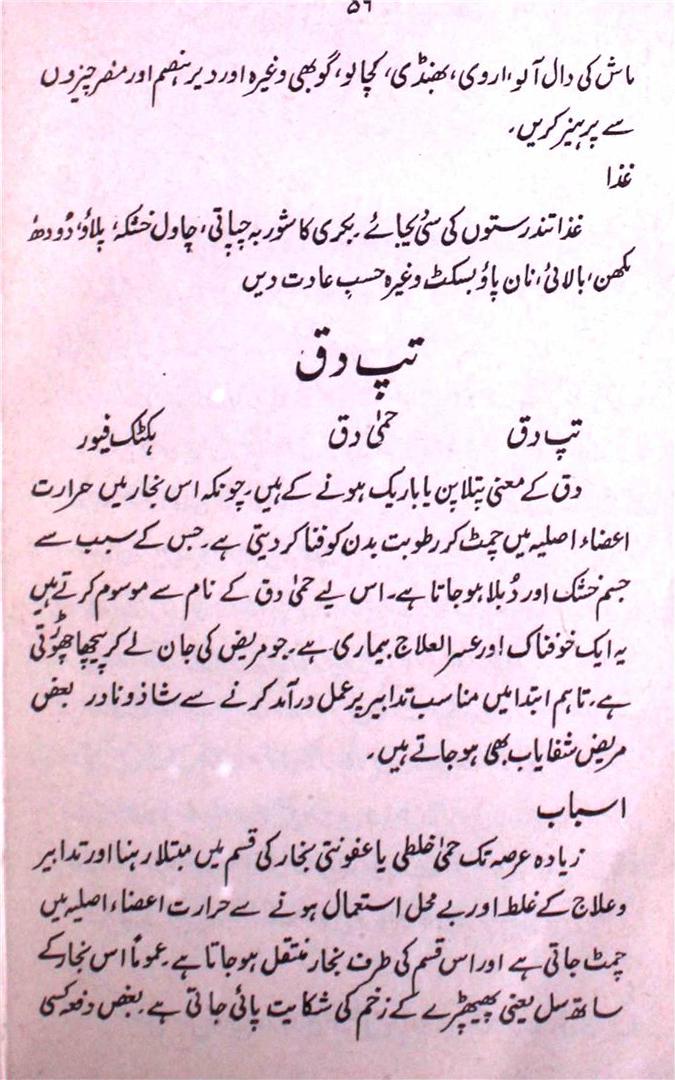 ۵۶
ماش کی دال آلو، اروی، بھنڈی، کچالو، گوبھی وغیرہ اور دیر ہضم اور مضر چیزوں
سے پرہیز کریں۔
غذا
غذا تندرستوں کی سی دیجائے۔ بکری کا شوربہ چپاتی، چاول خشکہ، پلاؤ، دودھ
مکھن، بالائی، نان پاؤ بسکٹ وغیرہ حسب عادت دیں
تپ دق
تپ دق حمیٰ دق ہکٹک فیور
دق کے معنی پتلا پن یا باریک ہونے کے ہیں۔ چونکہ اس بخار میں حرارت
اعضاء اصلیہ میں چمٹ کر رطوبت بدن کو فنا کر دیتی ہے۔ جس کے سبب سے
جسم خشک اور دُبلا ہو جاتا ہے۔ اس لیے حمیٰ دق کے نام سے موسوم کرتے ہیں
یہ ایک خوفناک اور عسر العلاج بیماری ہے۔ جو مریض کی جان لے کر پیچھا چھوڑتی
ہے۔ تاہم ابتدا میں مناسب تدابیر پر عمل درآمد کرنے سے شاذ و نادر بعض
مریض شفایاب بھی ہو جاتے ہیں۔
اسباب
زیادہ عرصہ تک حمیٰ خلطی یا عفونتی بخار کی قسم میں مبتلا رہنا اور تدابیر
و علاج کے غلط اور بے محل استعمال ہونے سے حرارت اعضاء اصلیہ میں
چمٹ جاتی ہے اور اس قسم کی طرف بخار منتقل ہو جاتا ہے۔ عموماً اس بخار کے
ساتھ سل یعنی پھیپھڑے کے زخم کی شکایت پائی جاتی ہے۔ بعض دفعہ کسی